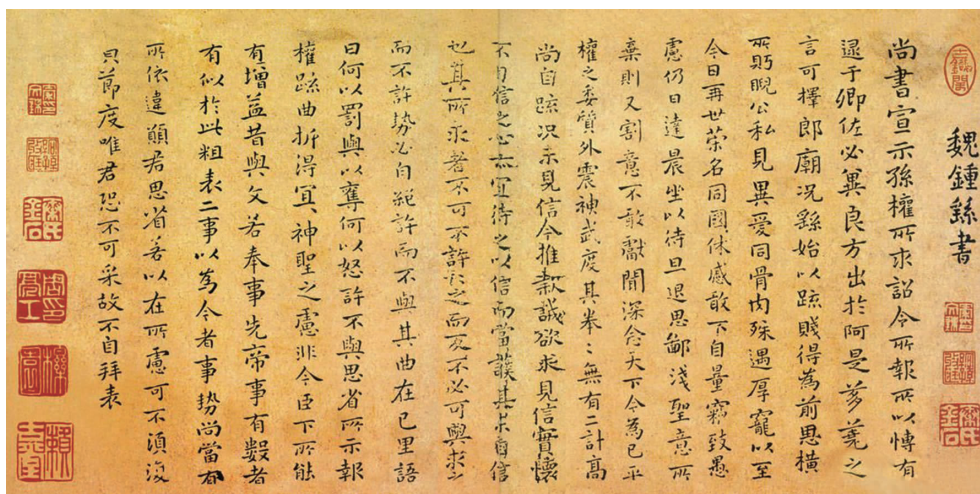 魏鍾繇書
尚書宣示孫權所求詔令所報所以博有
逯于卿佐必冀良方出於阿是芻蕘之
言可擇郎廟況繇始以疏賤得為前思橫
所眄睨公私見異愛同骨肉殊遇厚寵以至
今日再世榮名同國休慼敢不自量竊致愚
慮仍日達晨坐以待旦退思鄙淺聖意所
棄則又割意不敢獻聞深念天下今為已平
權之委質外震神武度其拳〻無有二計高
尚自疏況未見信今推款誠欲求見信實懷
不自信之心亦宜待之以信而當護其未自信
也其所求者不可不許許之而反不必可與求之
而不許勢必自絕許而不與其曲在己里語
曰何以罰與以奪何以怒許不與思省所示報
權疏曲折得宜宜神聖之慮非今臣下所能
有增益昔與文若奉事先帝事有數者
有似於此粗表二事以為今者事勢尚當有
所依違願君思省若以在所慮可不須復
貝節度唯君恐不可采故不自拜表